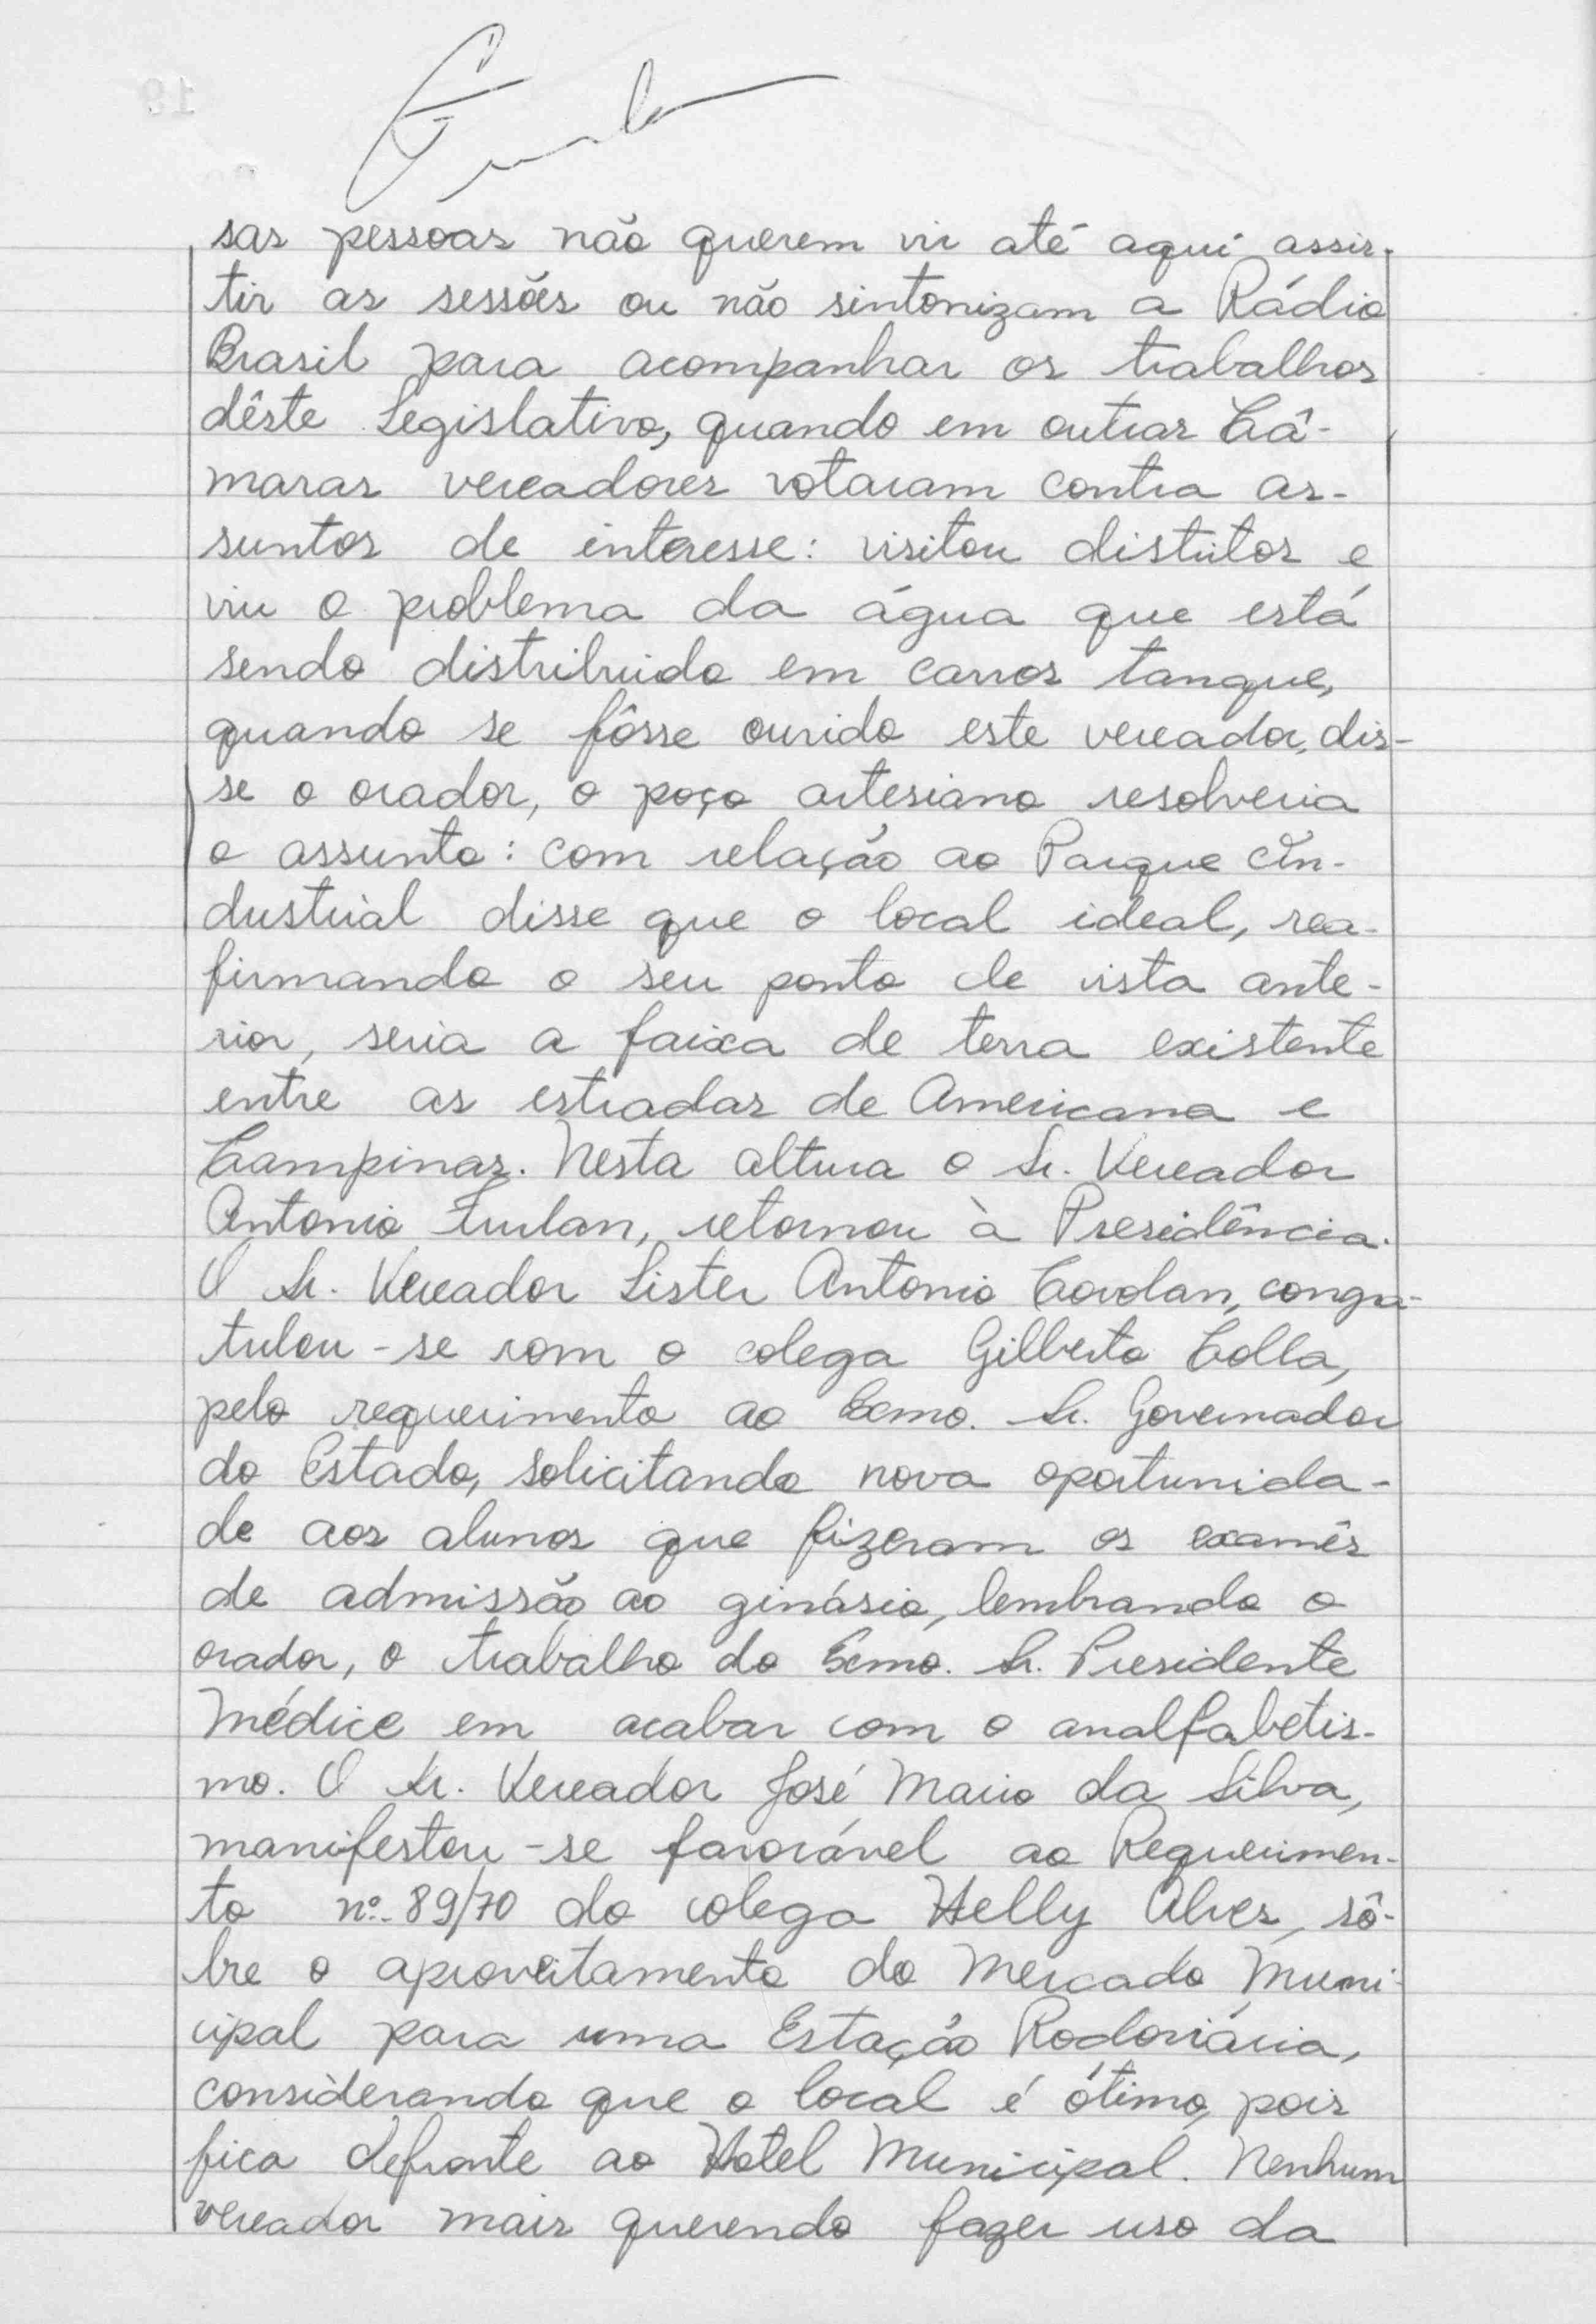 sas pessoas não querem vir até aqui assis-
tir as sessões ou não sintonizam a Rádio
Brasil para acompanhar os trabalhos
dêste Legislativo, quando em outras Câ-
maras vereadores votaram contra as-
suntos de interesse: visitou distritos e
viu o problema da água que está
sendo distribuido em carros tanque,
quando se fôsse ouvido este vereador, dis-
se o orador, o poço artesiano resolveria
o assunto: com relação ao Parque In-
dustrial disse que o local ideal, rea-
firmando o seu ponto de vista ante-
rior, seria a faixa de terra existente
entre as estradas de Americana e
Campinas. Nesta altura o Sr. Vereador
Antonio Furlan, retornou à Presidência.
O Sr. Vereador Lister Antonio Covolan, congra-
tulou-se com o colega Gilberto Colla,
pelo requerimento ao Exmo. Sr. Governador
do Estado, solicitando nova oportunida-
de aos alunos que fizeram os examês
de admissão ao ginásio, lembrando o
orador, o trabalho do Exmo. Sr. Presidente
Médice em acabar com o analfabetis-
mo. O Sr. Vereador José Mario da Silva,
manifestou-se favorável ao Requerimen-
to nº 89/70 do colega Helly Alves, sô-
bre o aproveitamento do Mercado Muni-
cipal para uma Estação Rodoviária,
considerando que o local é ótimo, pois
fica defronte ao Hotel Municipal. Nenhum
vereador mais querendo fazer uso da